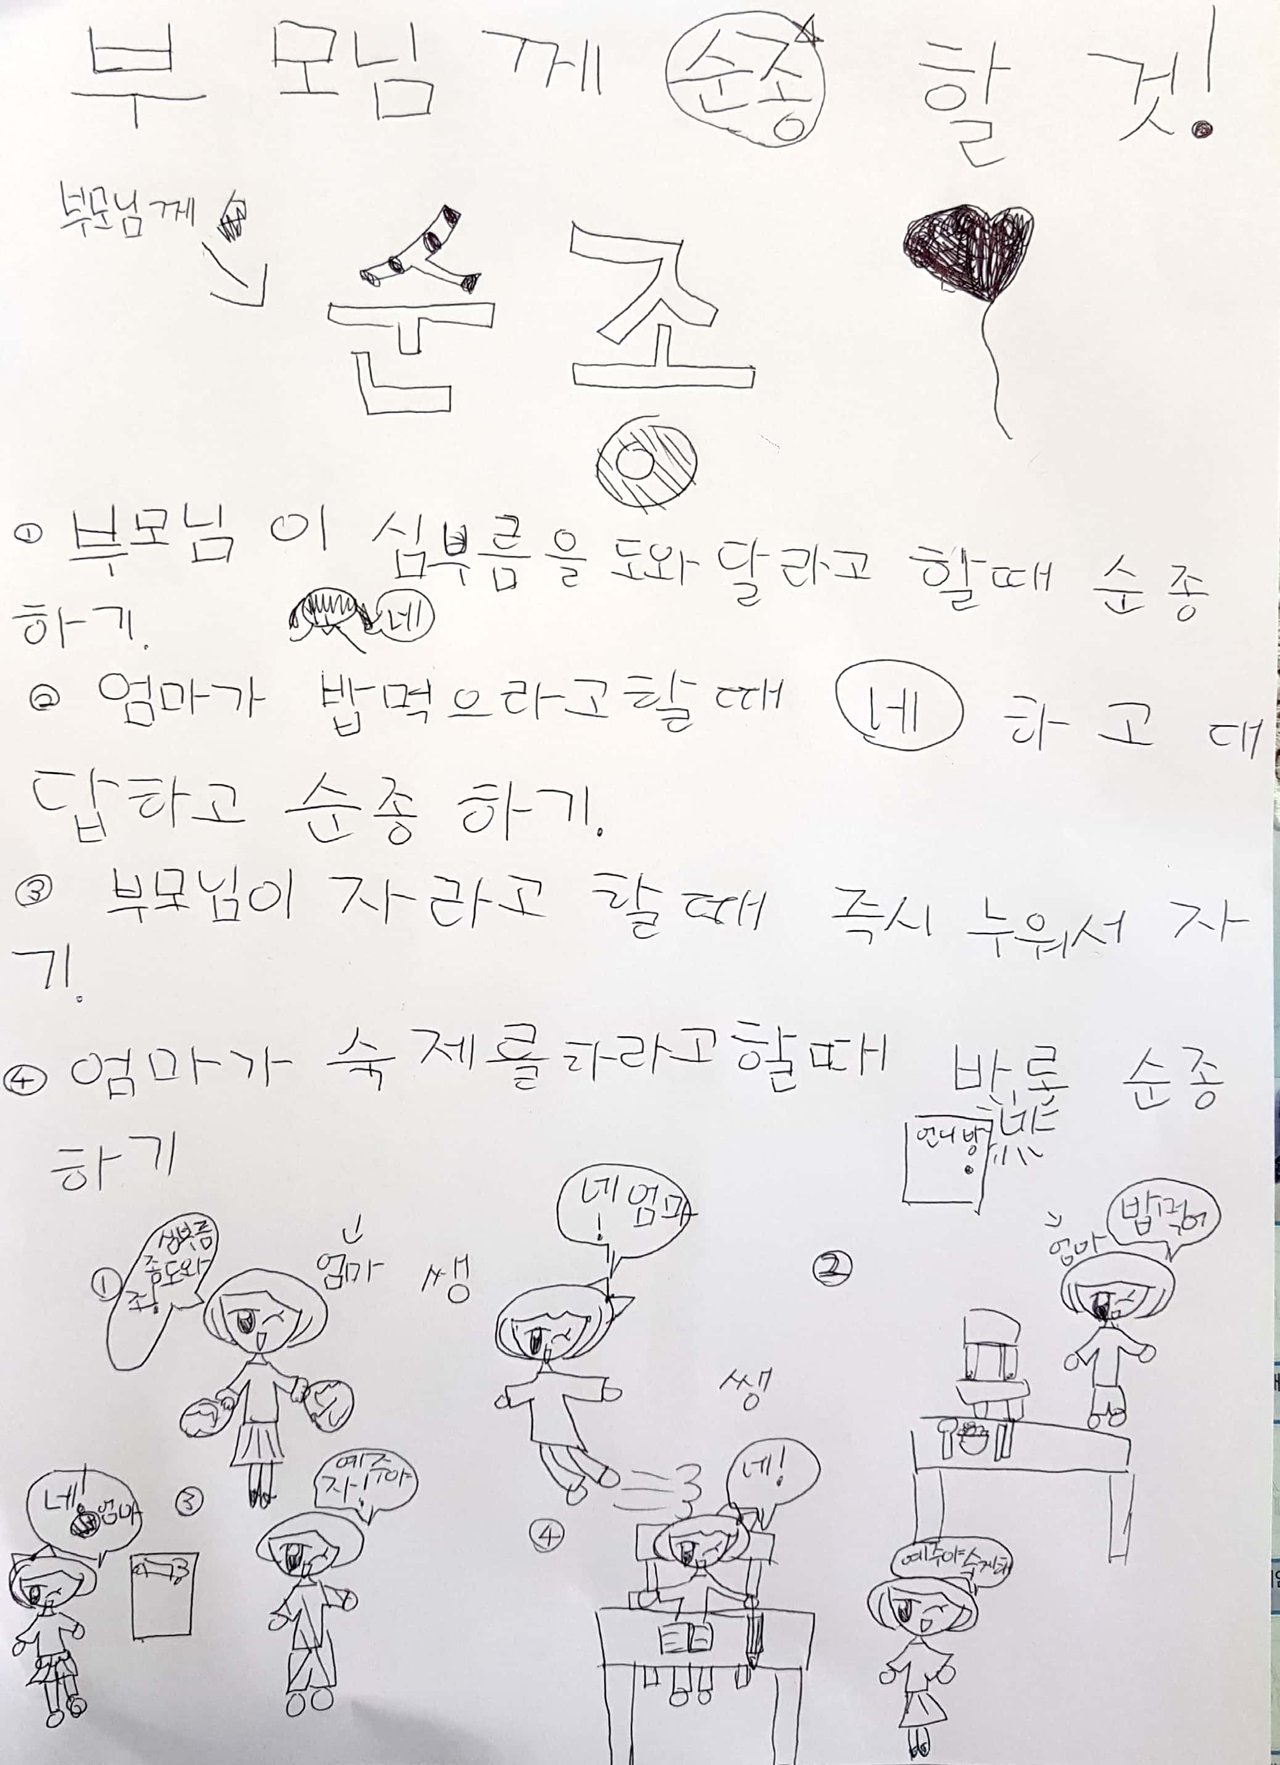 부모님께 순종 할 것!
부모님께
순종
① 부모님이 심부름을 도와달라고 할때 순종
하기.
네
② 엄마가 밥먹으라고할때 네 하고 대
답하고 순종 하기.
③ 부모님이 자라고 할때 즉시 누워서 자
기.
④ 엄마가 숙제를하라고할때 바로 순종
하기
언니방
네
①
심부름
좀도와
줘!
엄마
쌩
네엄마
!
②
엄마
밥먹어
쌩
③
네!
엄마
예주야
자!
④
네!
예주야숙제해